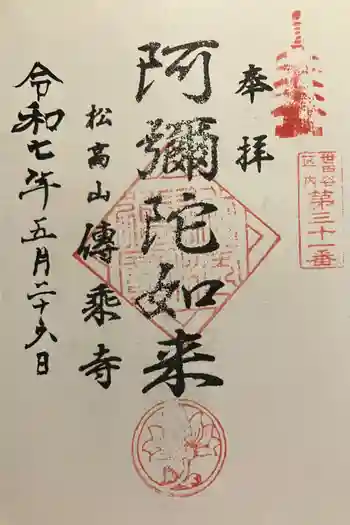 世田谷
区内
第三十一番
奉拝
阿彌陀如来
松高山
傳乘寺
令和七年五月二十六日